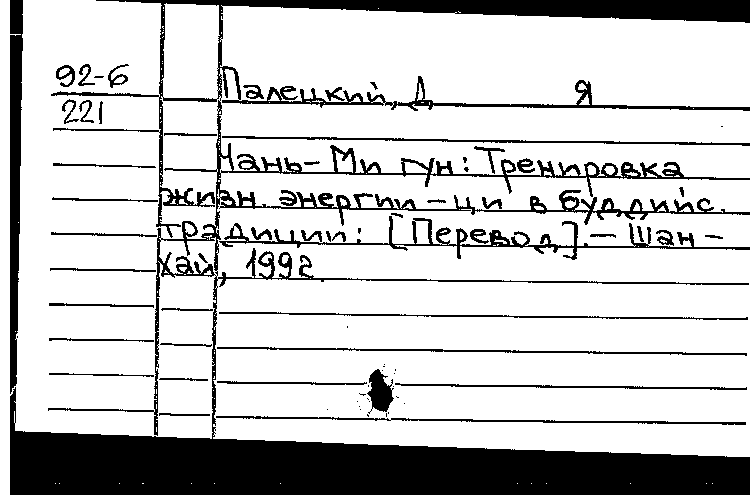 92-6
221
Палецкий, Д Я
Чань-Ми гун: Тренировка
жизн. энергии - ци в буддийс.
традиции: [Перевод]. - Шан-
хай, 1992